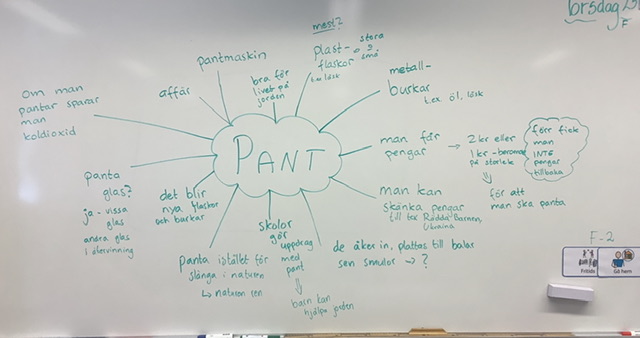 torsdag
F
mest?
plast-
flaskor
stora
o
små
t ex läsk
pantmaskin
affär
bra för
livet på
jorden
metall-
burkar
t.ex. öl, läsk
Om man
pantar sparar
man
koldioxid
PANT
man får
pengar
2 kr eller
1 kr - beroende
på storlek
för att
man ska panta
förr fick
man
INTE
pengar
tillbaka
panta
glas?
ja - vissa
glas
andra glas
i återvinning
det blir
nya flaskor
och burkar
man kan
skänka pengar
till tex Rädda Barnen,
Ukraina
skolor
gör
uppdrag
med
pant
barn kan
hjälpa jorden
panta istället för
slänga i naturen
↳ naturen ren
de åker in, plattas till balar
sen smulor → ?
F-2
Fritids
Gå hem